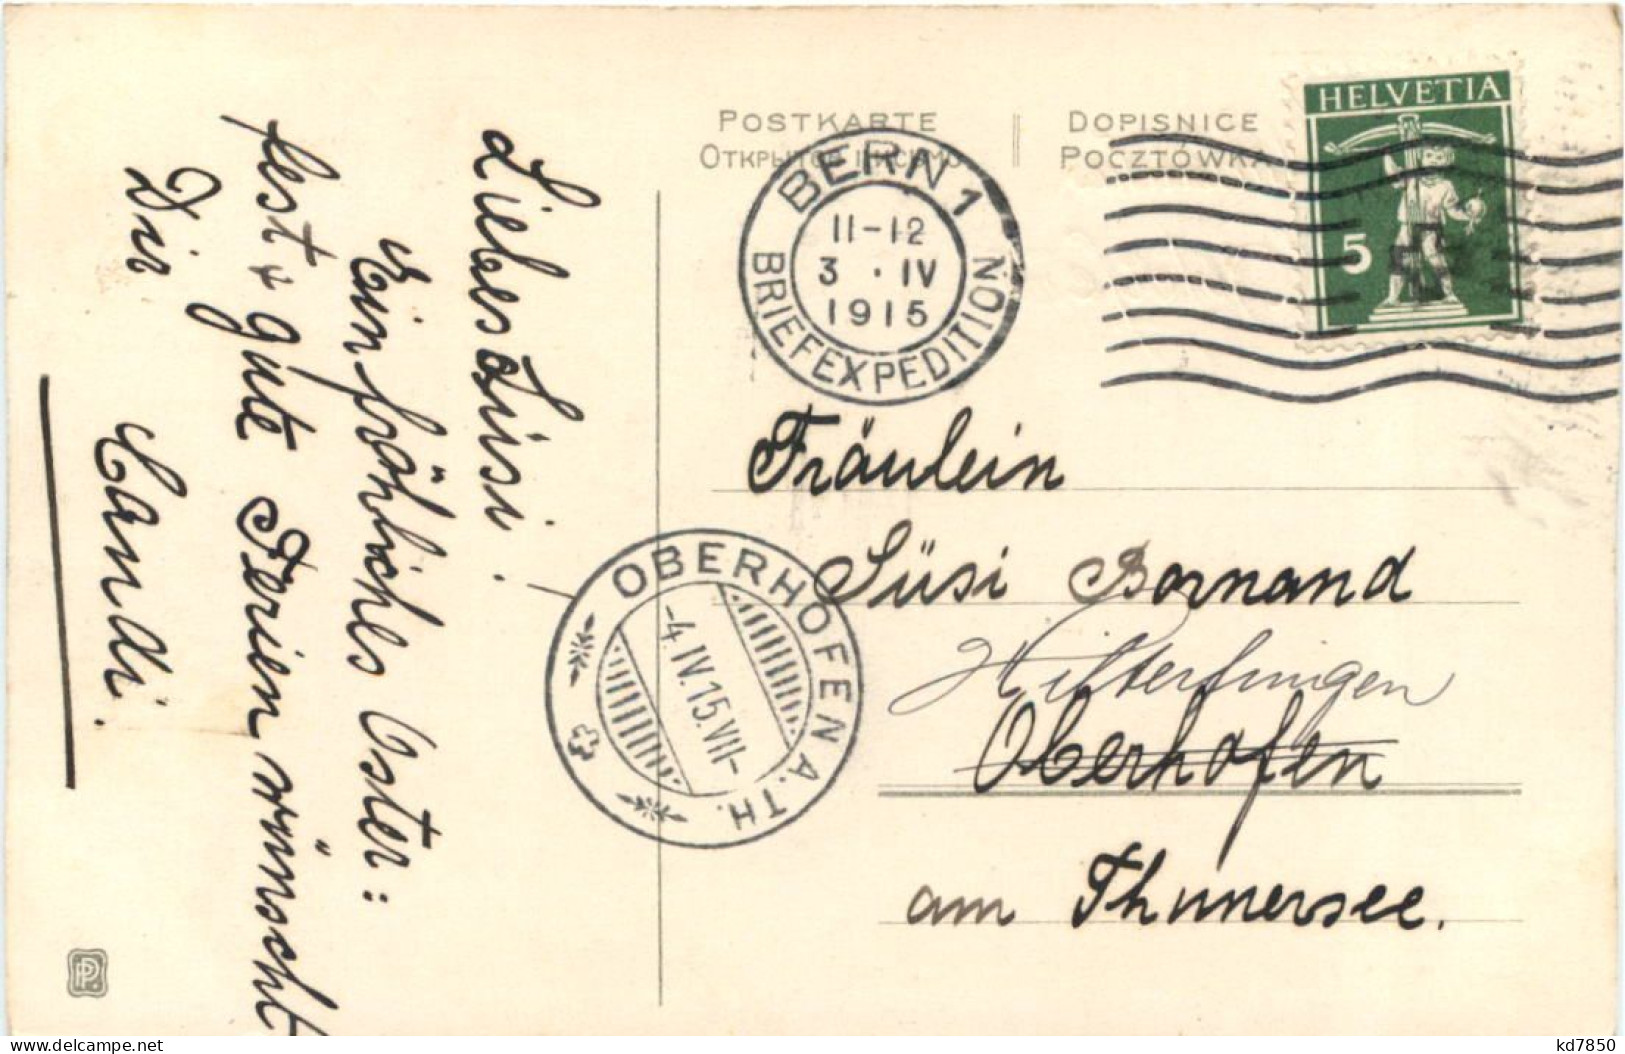 POSTKARTE
DOPISNICE
Открытое письмо
POCZTÓWKA
HELVETIA
5
BERN 1
11-12
3 . IV
1915
BRIEFEXPEDITION
Liebes Züsi!
Ein fröhliches Oster=
fest & gute Ferien wünscht
Dir
Handi.
OBERHOFEN A. TH.
-4.IV.15.VII-
Fräulein
Süsi Bornand
Hilterfingen
Oberhofen
am Thunersee.
PP
delcampe.net
kd7850